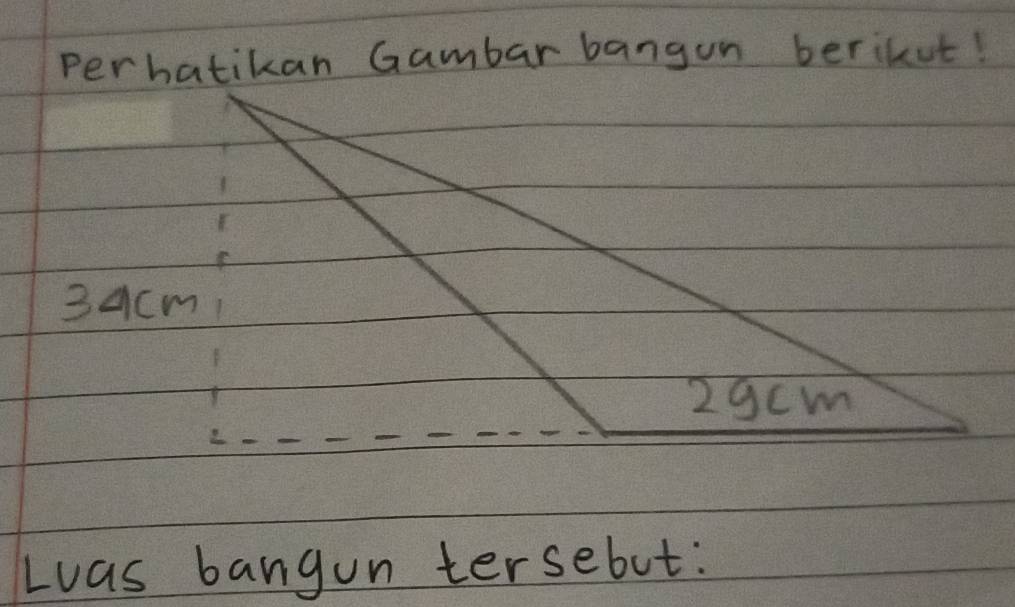 Perhatikan Gambar bangun berikut!
34cm
29cm
Luas bangun tersebut: